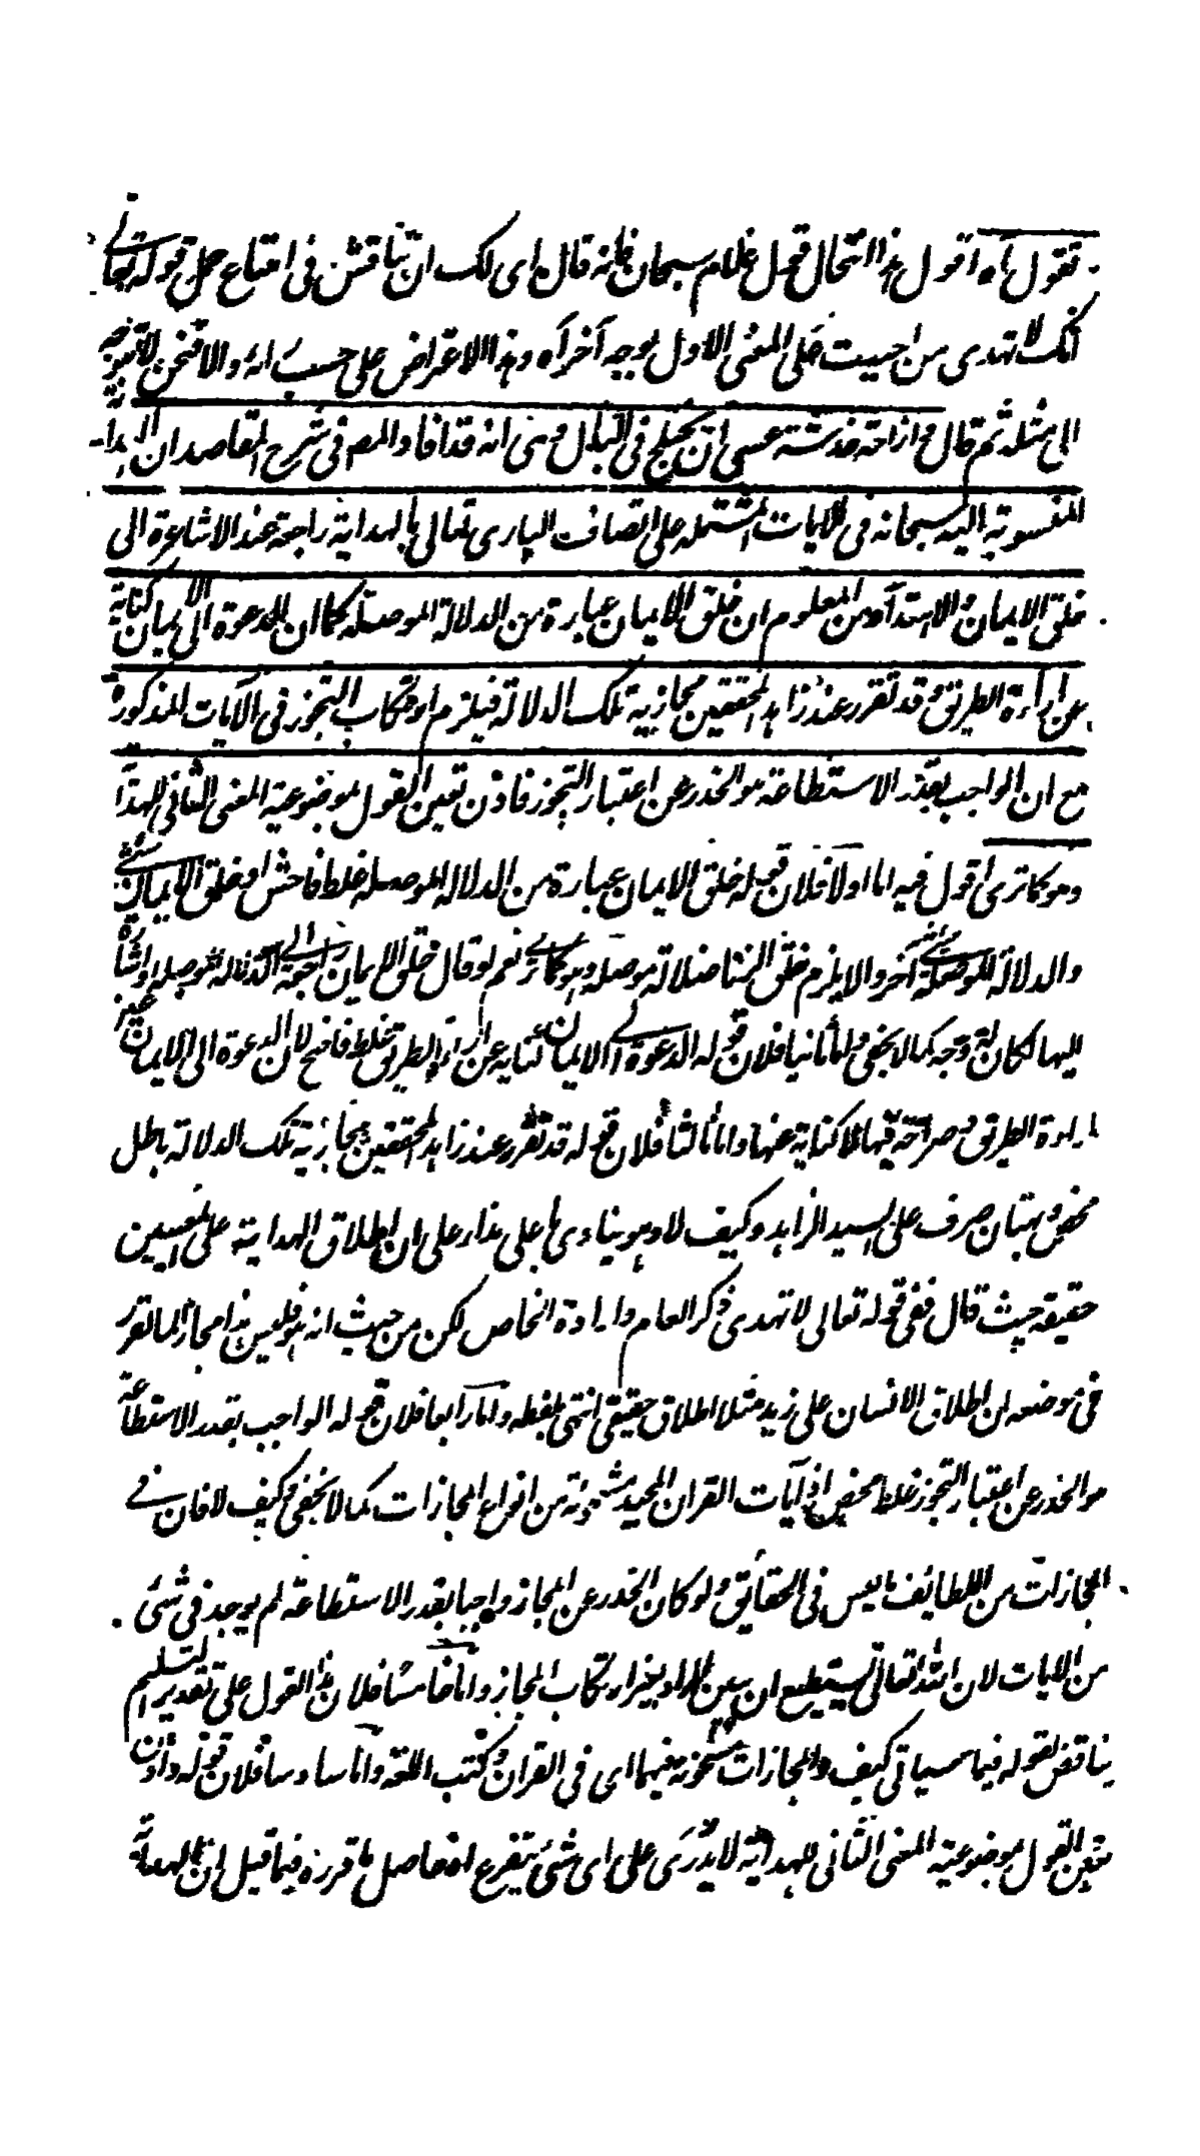 فنقول اه اقول هذا انتحال قول غلام سبحان فانه قال اى لك ان تناقش فى امتناع حمل قوله تعالى
انك لا تهدى من احببت على المعنى الاول بوجه آخر اه وهذا الاعتراض على حسب رائه والا فنحن لا نتوجه
الى مثله ثم قال وازاحة خدشة عسى ان يختلج فى البال وهى انه قد افاد المص فى شرح المقاصد ان الهداية
المنسوبة اليه سبحانه فى الآيات المشتملة على اتصاف البارى تعالى بالهداية راجعة عند الاشاعرة الى
خلق الايمان والاهتداء ومن المعلوم ان خلق الايمان عبارة من الدلالة الموصلة كما ان الدعوة الى الايمان كناية
عن اراءة الطريق وقد تقرر عند زاهد المحققين مجازية تلك الدلالة فيلزم ارتكاب التجوز فى الآيات المذكورة
مع ان الواجب بقدر الاستطاعة هو الحذر عن اعتبار التجوز فاذن تعين القول بموضوعية المعنى الثانى للهداية
وهو كما ترى اقول فيه اما اولا فلان قوله خلق الايمان عبارة من الدلالة الموصلة غلط فاحش اذ خلق الايمان شئ
والدلالة الموصلة شئ آخر والا يلزم خلق الزنا ضلالة موصلة وهو كما ترى نعم لو قال خلق الايمان راجعة الى الدلالة الموصلة واشارة
اليها لكان له وجه كما لا يخفى واما ثانيا فلان قوله الدعوة الى الايمان كناية عن اراءة الطريق غلط فاضح لان الدعوة الى الايمان عين
اراءة الطريق وصراحة فيها لا كناية عنها واما ثالثا فلان قوله قد تقرر عند زاهد المحققين مجازية تلك الدلالة باطل
محض وبهتان صرف على السيد الزاهد وكيف لا وهو ينادى باعلى نداء على ان اطلاق الهداية على المعنيين
حقيقة حيث قال ففى قوله تعالى لا تهدى ذكر العام وارادة الخاص لكن من حيث انه هو فليس هذا مجازا لما تقرر
فى موضعه ان اطلاق الانسان على زيد مثلا اطلاق حقيقى انتهى بلفظه واما رابعا فلان قوله الواجب بقدر الاستطاعة
هو الحذر عن اعتبار التجوز غلط محض اذ آيات القران المجيد مشحونة من انواع المجازات كما لا يخفى وكيف لا فان فى
المجازات من اللطائف ما ليس فى الحقائق ولو كان الحذر عن المجاز واجبا بقدر الاستطاعة لم يوجد فى شئ
من الايات لان الله تعالى يستطيع ان يبين المراد بغير ارتكاب المجاز واما خامسا فلان هذا القول على تقدير التسليم
يناقض لقوله فيما سياتى كيف والمجازات مشحونة فيهما اى فى القران وكتب اللغة واما سادسا فلان قوله فاذن
تعين القول بموضوعية المعنى الثانى للهداية لا يدرى على اى شئ يتفرع اذ حاصل ما قرره فيما قيل ان الهداية